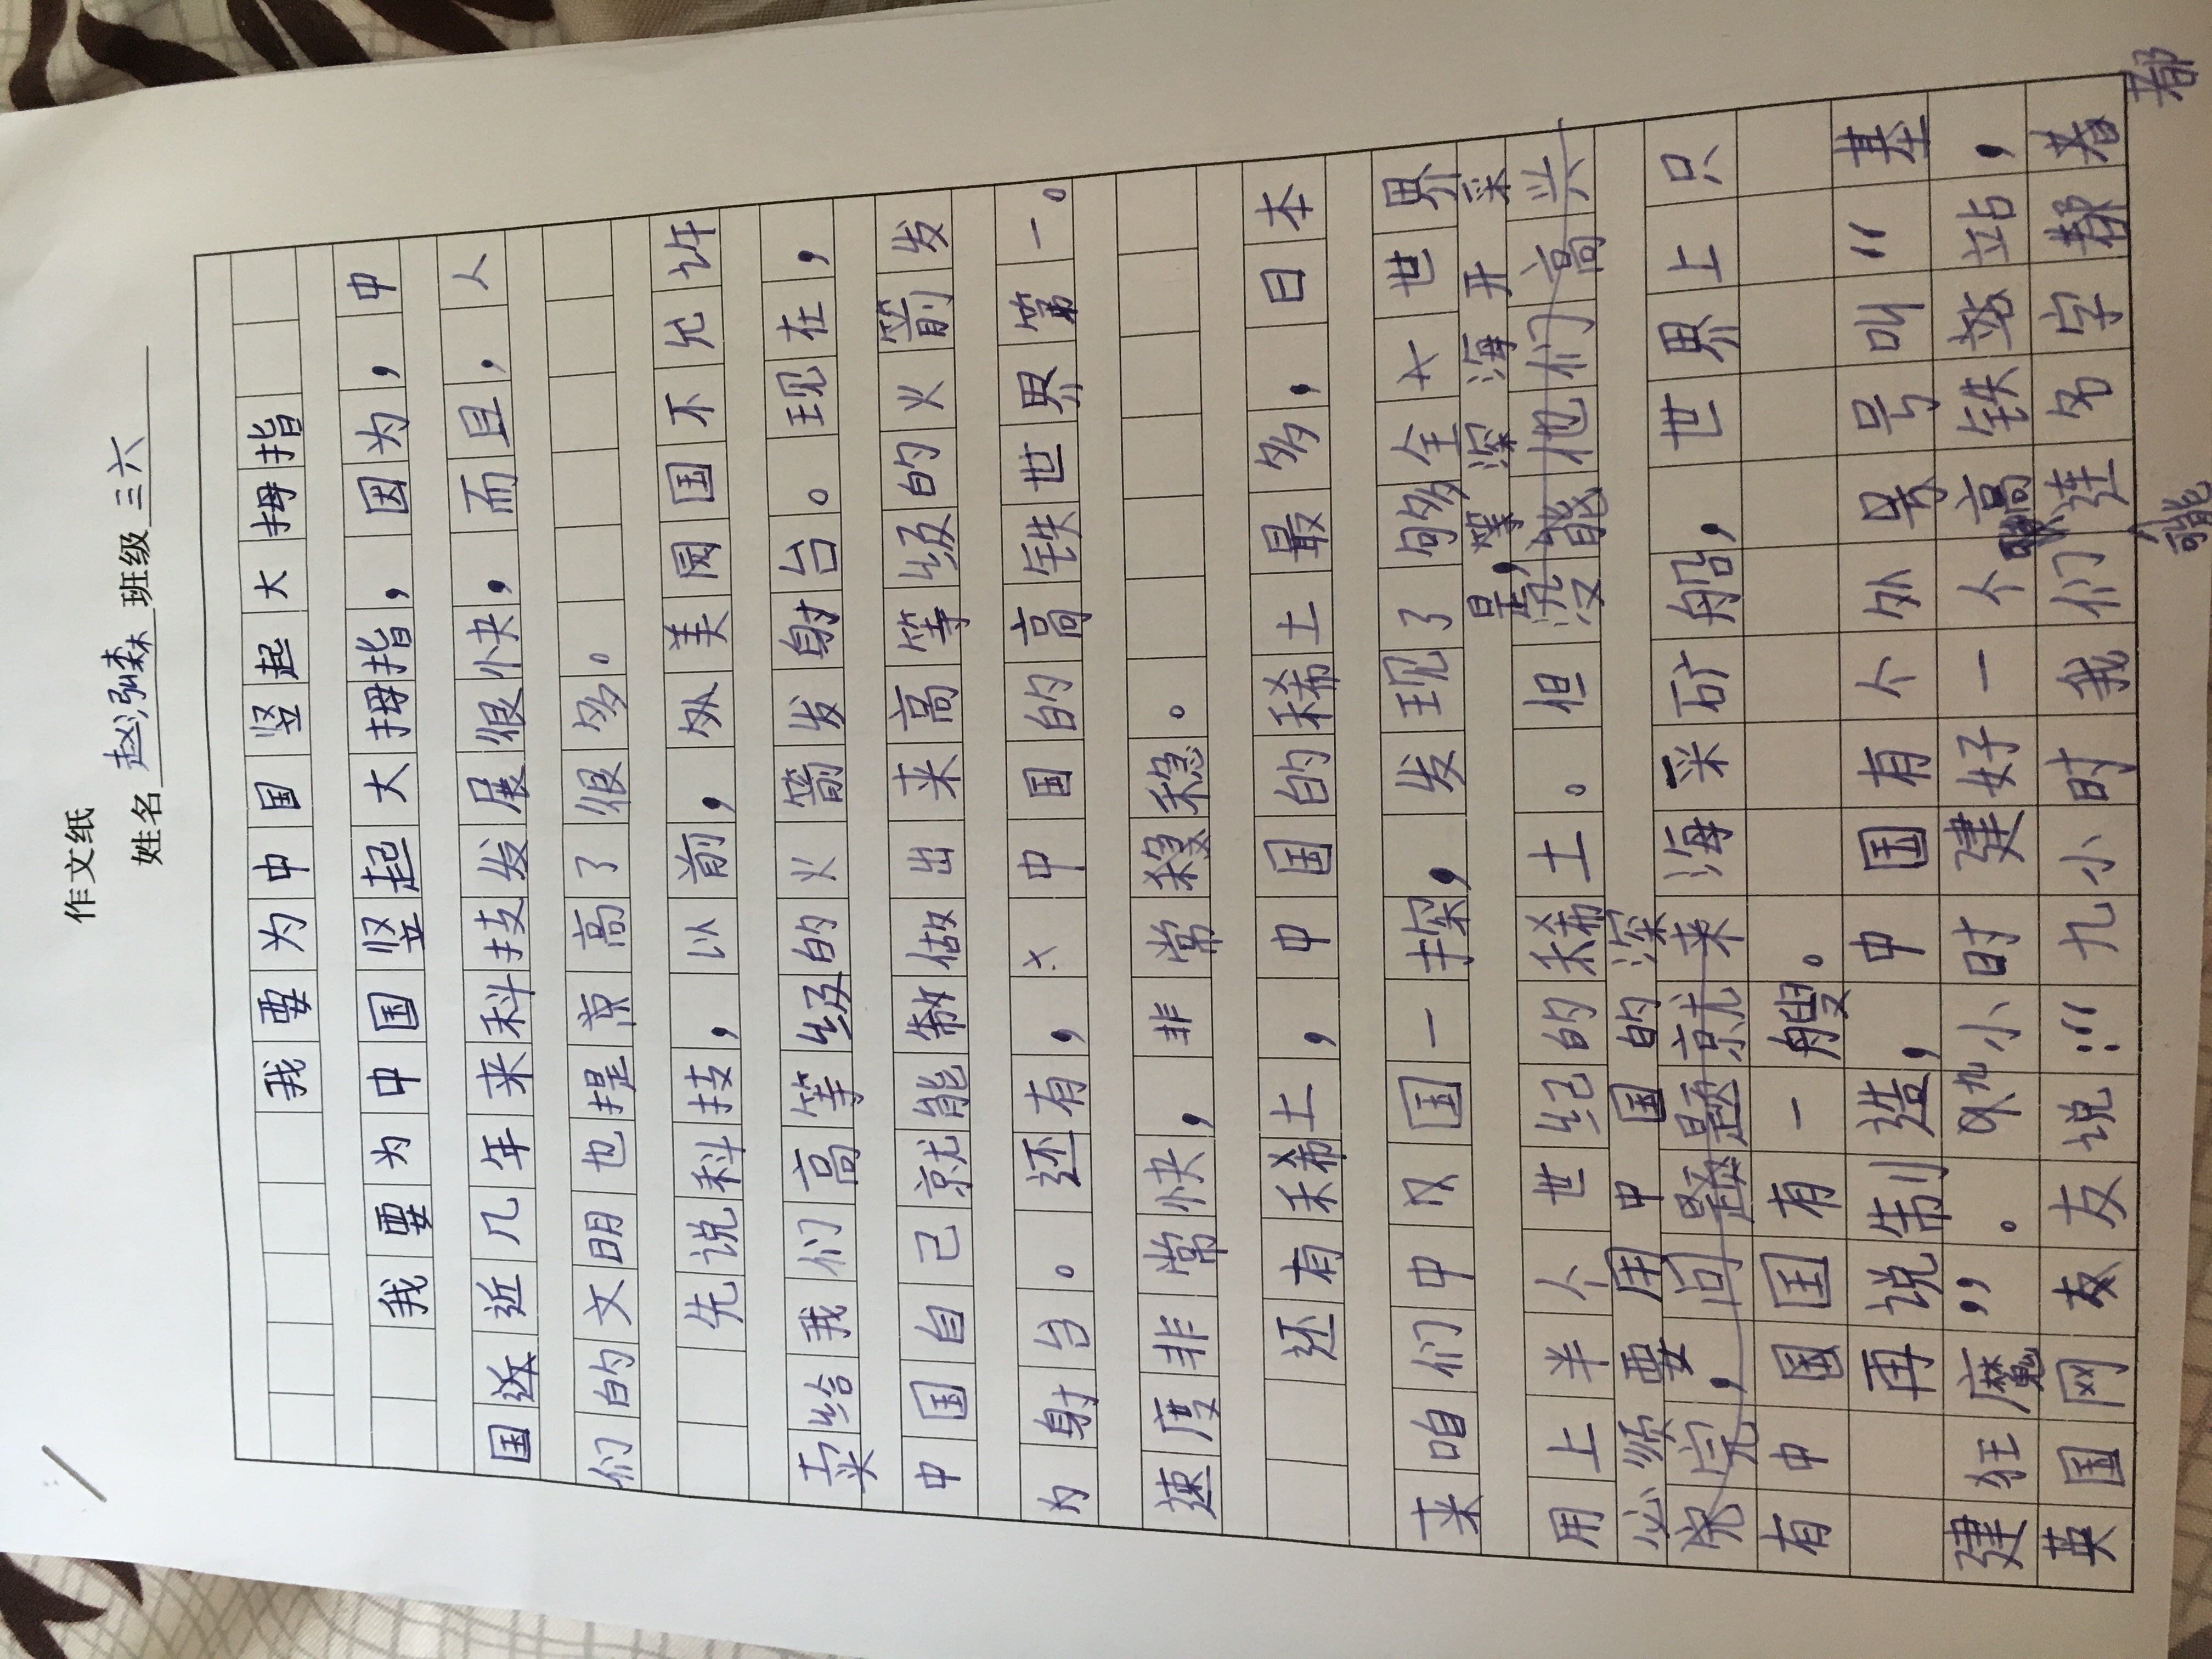 作文纸
姓名 赵泓森 班级 三六
我要为中国竖起大拇指
我要为中国竖起大拇指，因为，中
国近几年来科技发展很快，而且，人
们的文明也提高了很多。
先说科技，以前，美国不允许
卖给我们高等级的火箭发射台。现在，
中国自己就能做出来高等级的火箭发
射台。还有，中国的高铁世界第一。
速度非常快，非常稳。
还有稀土，中国的稀土最多，日本
来咱们中国一探，发现了够全世界
用上半个世纪的稀土。但是，深海开采
必须要用中国的深海采矿船，世界上只
有中国有一艘。
再说制造，中国有个外号叫“基
建狂魔”。九小时建好一个高铁站，
英国网友说：“九小时我们连名字都